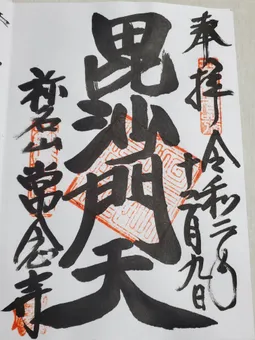 奉拝
令和二年
十一月九日
毘沙門天
常念寺